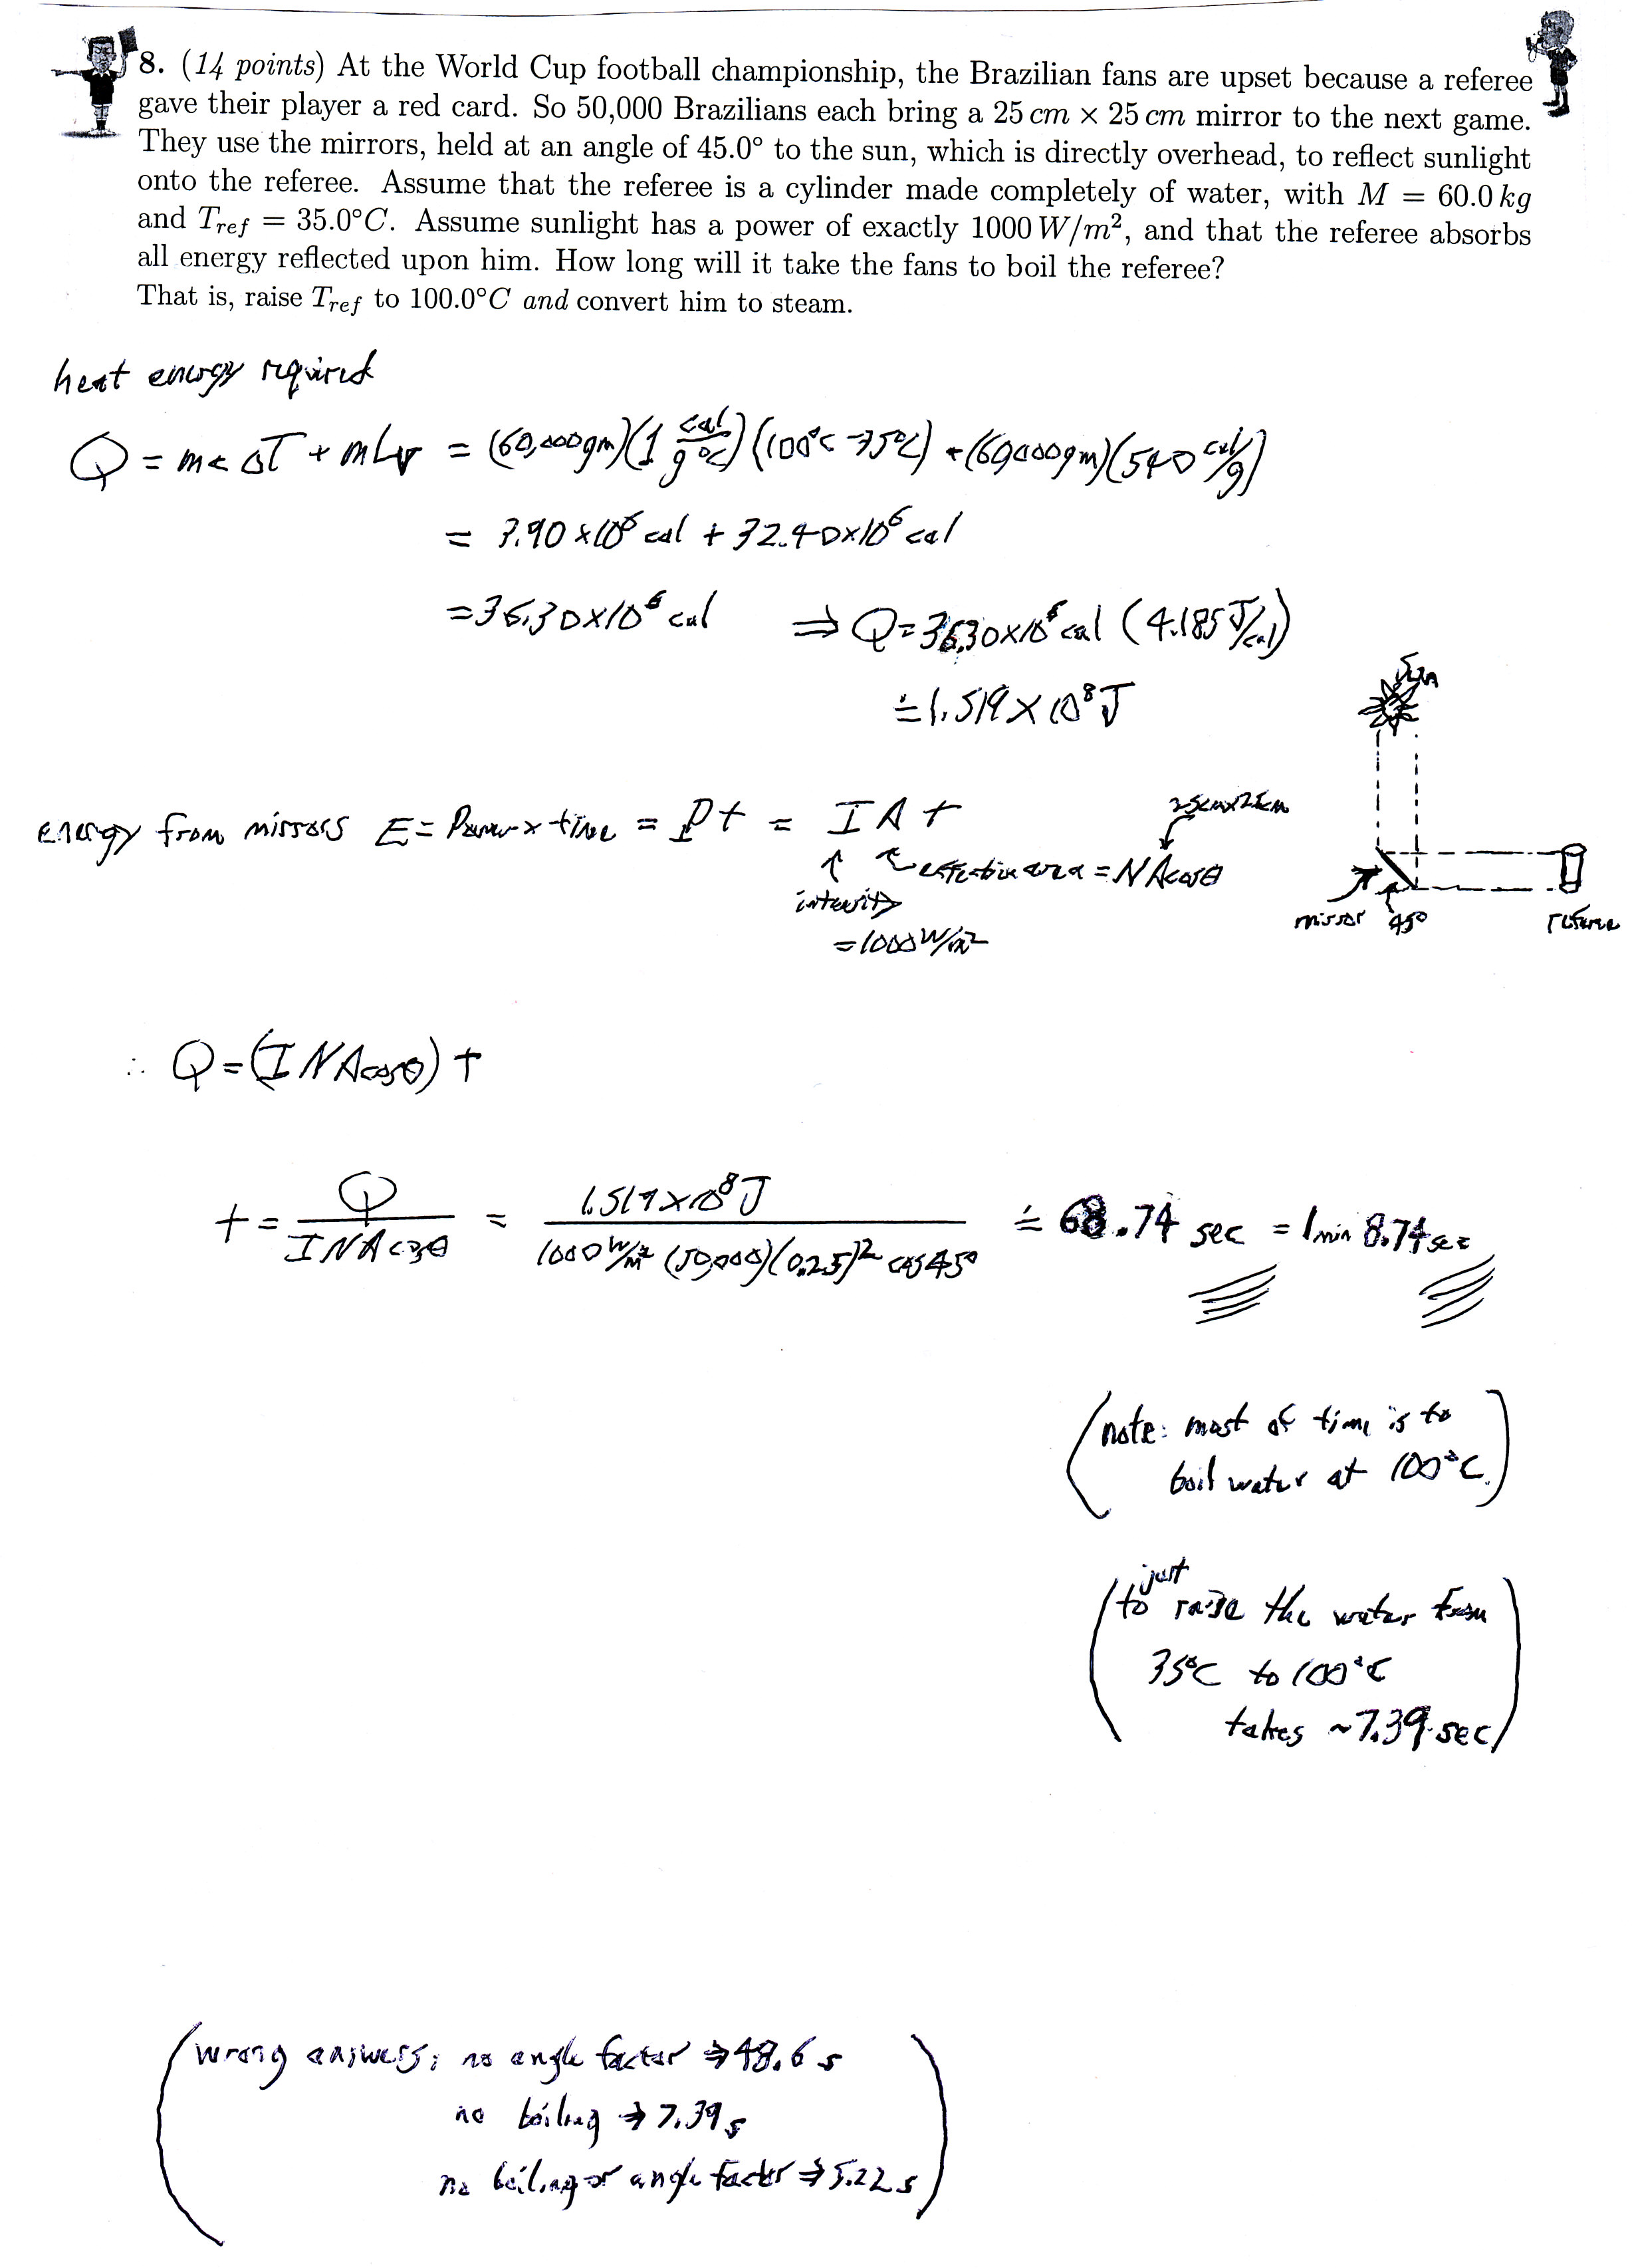 8. (14 points) At the World Cup football championship, the Brazilian fans are upset because a referee
gave their player a red card. So 50,000 Brazilians each bring a 25 cm × 25 cm mirror to the next game.
They use the mirrors, held at an angle of 45.0° to the sun, which is directly overhead, to reflect sunlight
onto the referee. Assume that the referee is a cylinder made completely of water, with M = 60.0 kg
and T_ref = 35.0°C. Assume sunlight has a power of exactly 1000 W/m², and that the referee absorbs
all energy reflected upon him. How long will it take the fans to boil the referee?
That is, raise T_ref to 100.0°C and convert him to steam.
heat energy required
Q = mcΔT + mLv = (60,000gm)(1 cal/g°C)(100°C-35°C) + (60,000gm)(540 cal/g)
= 3.90×10⁶ cal + 32.40×10⁶ cal
= 36.30×10⁶ cal ⇒ Q = 36.30×10⁶ cal (4.185 J/cal)
≐ 1.519×10⁸ J
Sun
energy from mirrors E = Power × time = Pt = IAt
25cm×25cm
effective area = NAcosθ
intensity
= 1000 W/m²
mirror 45° referee
∴ Q = (INAcosθ)t
t = Q/(INAcosθ) = 1.519×10⁸ J/(1000 W/m² (50,000)(0.25)² cos45°) ≐ 68.74 sec = 1 min 8.74 sec
(note: most of time is to
boil water at 100°C.)
(to just raise the water from
35°C to 100°C
takes ~7.39 sec)
(wrong answers: no angle factor ⇒ 48.6 s
no boiling ⇒ 7.39 s
no boiling or angle factor ⇒ 5.22 s)